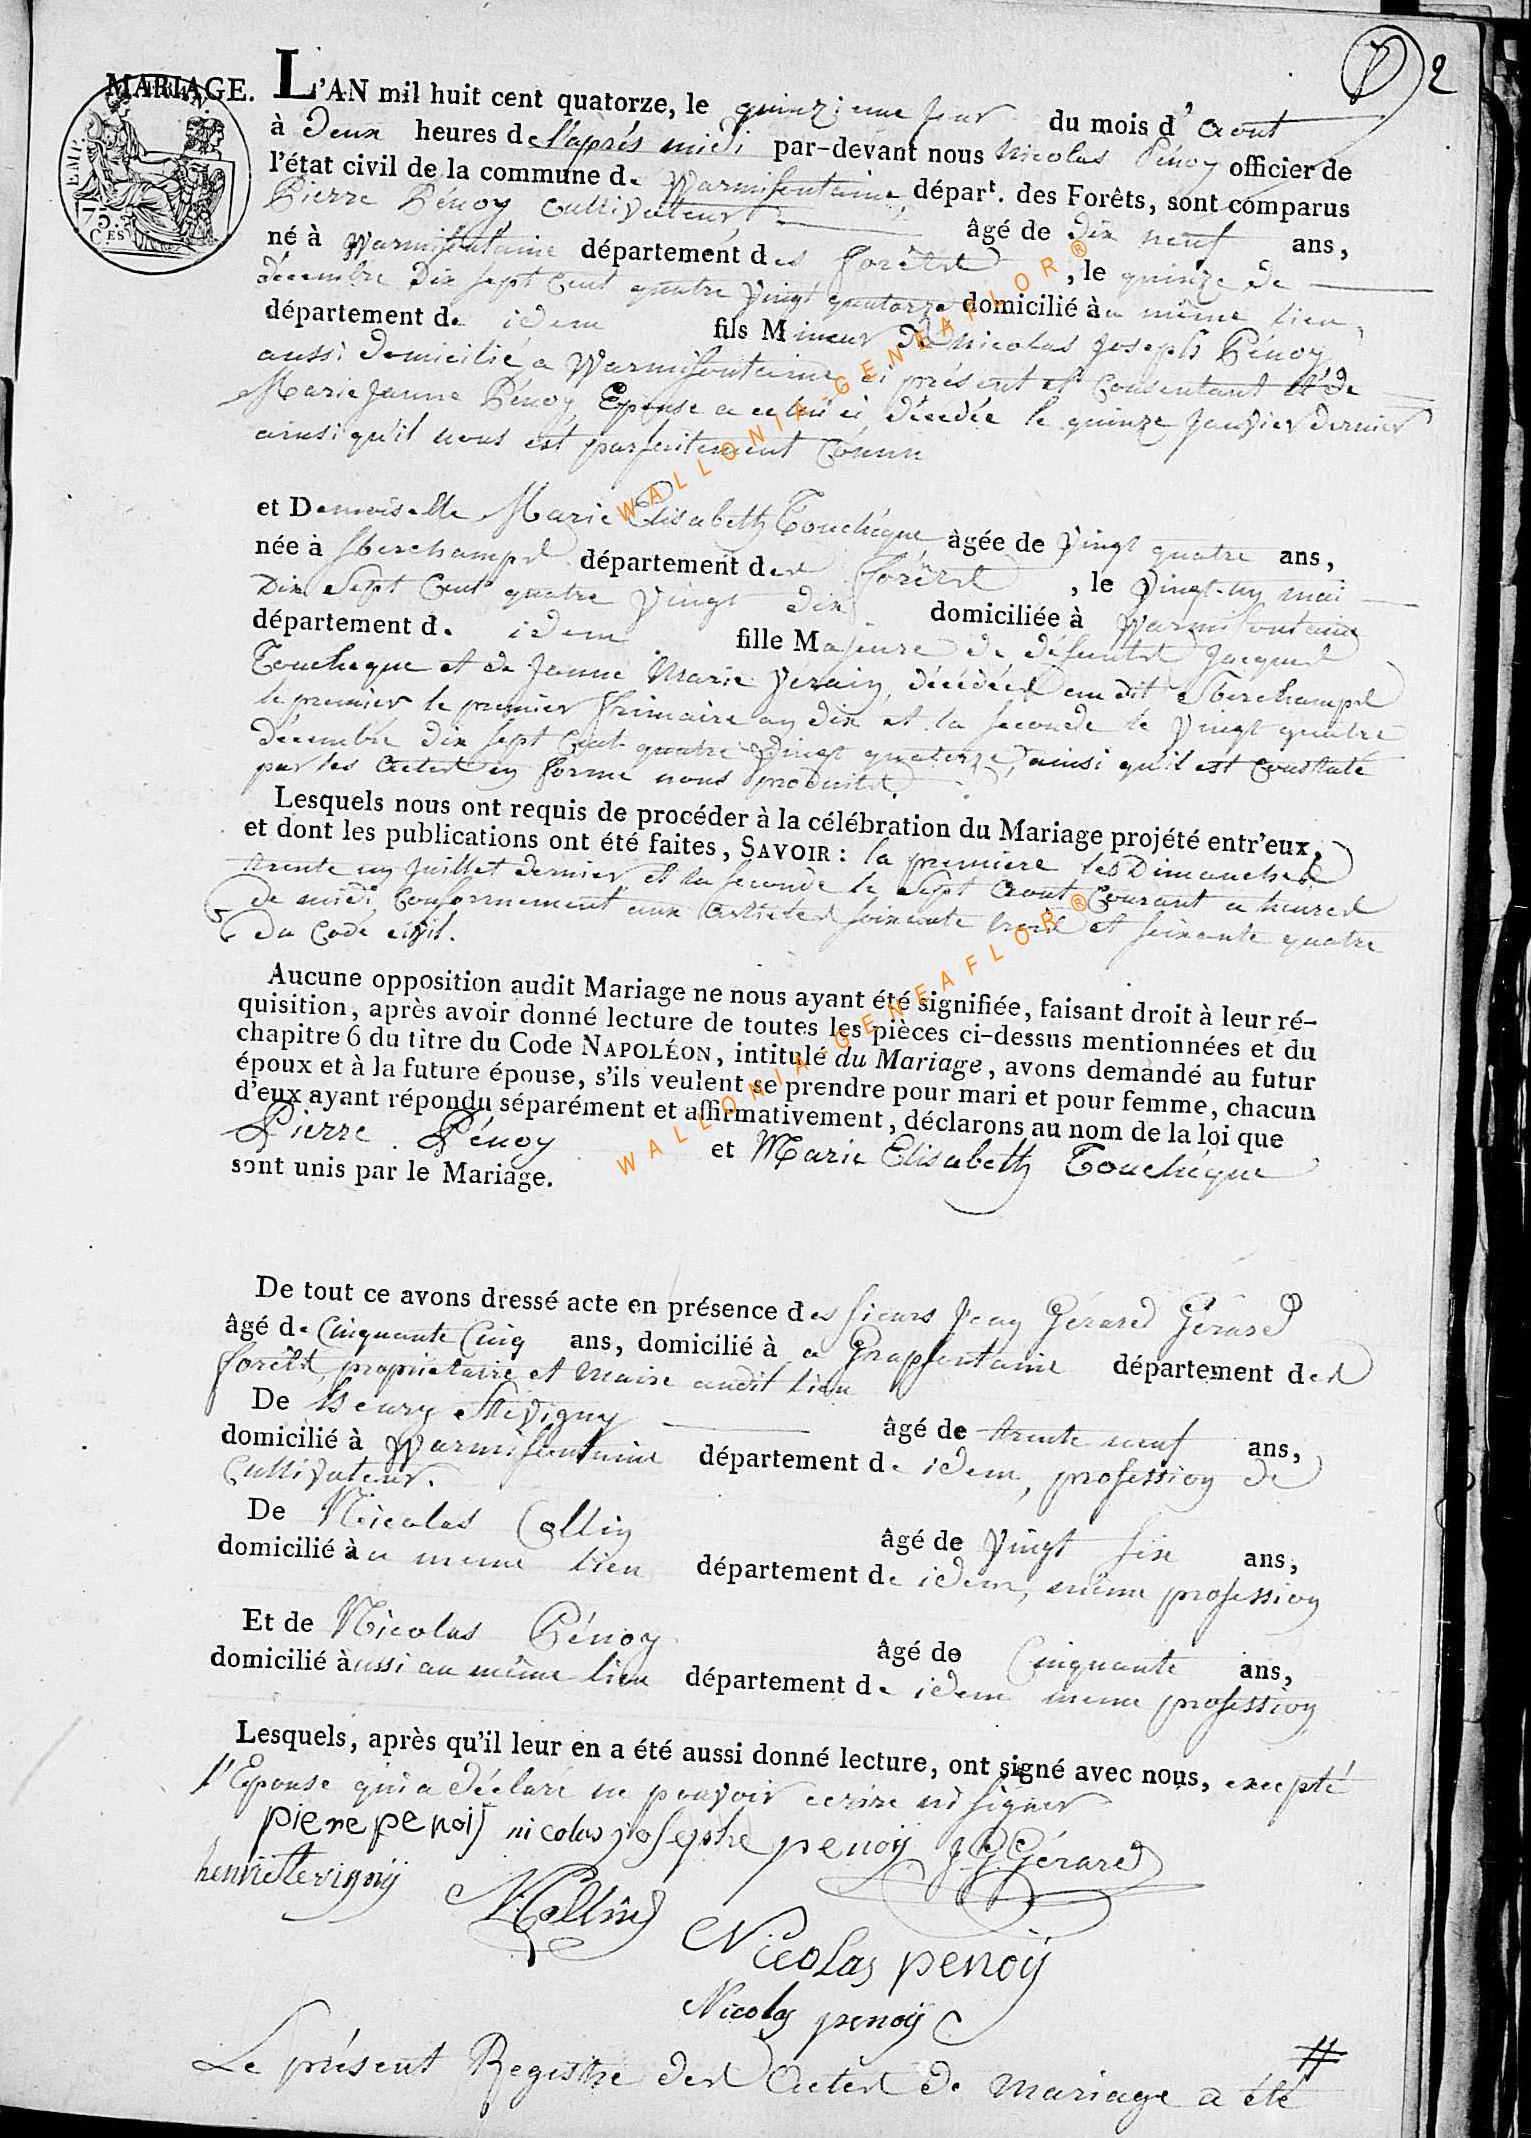 2
MARIAGE. L'AN mil huit cent quatorze, le quinzieme jour du mois d'aout
à deux heures de l'aprés midi par-devant nous Nicolas Pénoy officier de
l'état civil de la commune de Warmifontaine, départ. des Forêts, sont comparus
Pierre Pénoy, cultivateur âgé de dix neuf ans,
né à Warmifontaine département des forêts, le quinze de
décembre dix sept cent quatre vingt quatorze domicilié à au même lieu,
département de idem fils Mineur de Nicolas Joseph Pénoy
aussi domicilié a Warmifontaine ci présent et consentant et de
Marie Jeanne Pénoy Epouse a celui ci, décedée le quinze janvier dernier
ainsi qu'il nous est parfaitement connu
et Demoiselle Marie Elisabeth Touchèque, âgée de vingt quatre ans,
née à Sberchamps département des forêts, le vingt-un mai
dix sept cent quatre vingt dix domiciliée à Warmifontaine
département de idem fille Majeure de défunts Jacques
Toucheque et de Jeanne Marie décédés au dit Sberchamps
le premier le premier frimaire an dix et la seconde le vingt quatre
décembre dix sept cent quatre vingt quatorze, ainsi qu'il est constaté
par les actes en forme nous produits.
Lesquels nous ont requis de procéder à la célébration du Mariage projété entr'eux,
et dont les publications ont été faites, SAVOIR : la première les Dimanches
trente un juillet dernier et la seconde le sept aout courant a heures
de midi, conformement aux articles soixante trois et soixante quatre
du code civil.
Aucune opposition audit Mariage ne nous ayant été signifiée, faisant droit à leur ré-
quisition, après avoir donné lecture de toutes les pièces ci-dessus mentionnées et du
chapitre 6 du titre du Code NAPOLÉON, intitulé du Mariage, avons demandé au futur
époux et à la future épouse, s'ils veulent se prendre pour mari et pour femme, chacun
d'eux ayant répondu séparément et affirmativement, déclarons au nom de la loi que
Pierre Pénoy et Marie Elisabeth Touchèque
sont unis par le Mariage.
De tout ce avons dressé acte en présence des sieurs Jean Gérard Gérard
âgé de cinquante cinq ans, domicilié à a Grapfontaine département des
forêts, propriétaire et maire audit lieu
De Henry Stévigny âgé de trente neuf ans,
domicilié à Warmifontaine département de idem, profession de
cultivateur.
De Nicolas Collin âgé de vingt six ans,
domicilié à au meme lieu département de idem, même profession
Et de Nicolas Pénoy âgé de cinquante ans,
domicilié aussi au même lieu département de idem meme profession
Lesquels, après qu'il leur en a été aussi donné lecture, ont signé avec nous, excepté
l'Epouse qui a déclaré ne pouvoir ecrire ni signer
piere penoij nicolas josephe penoij J G Gérard
henri stevignij N Collin
Nicolas penoij
Nicolas penoij
Le présent Registre des actes de mariage a été #
EMP.
75.
CES
WALLONIA-GENEAFLOR®
WALLONIA-GENEAFLOR®